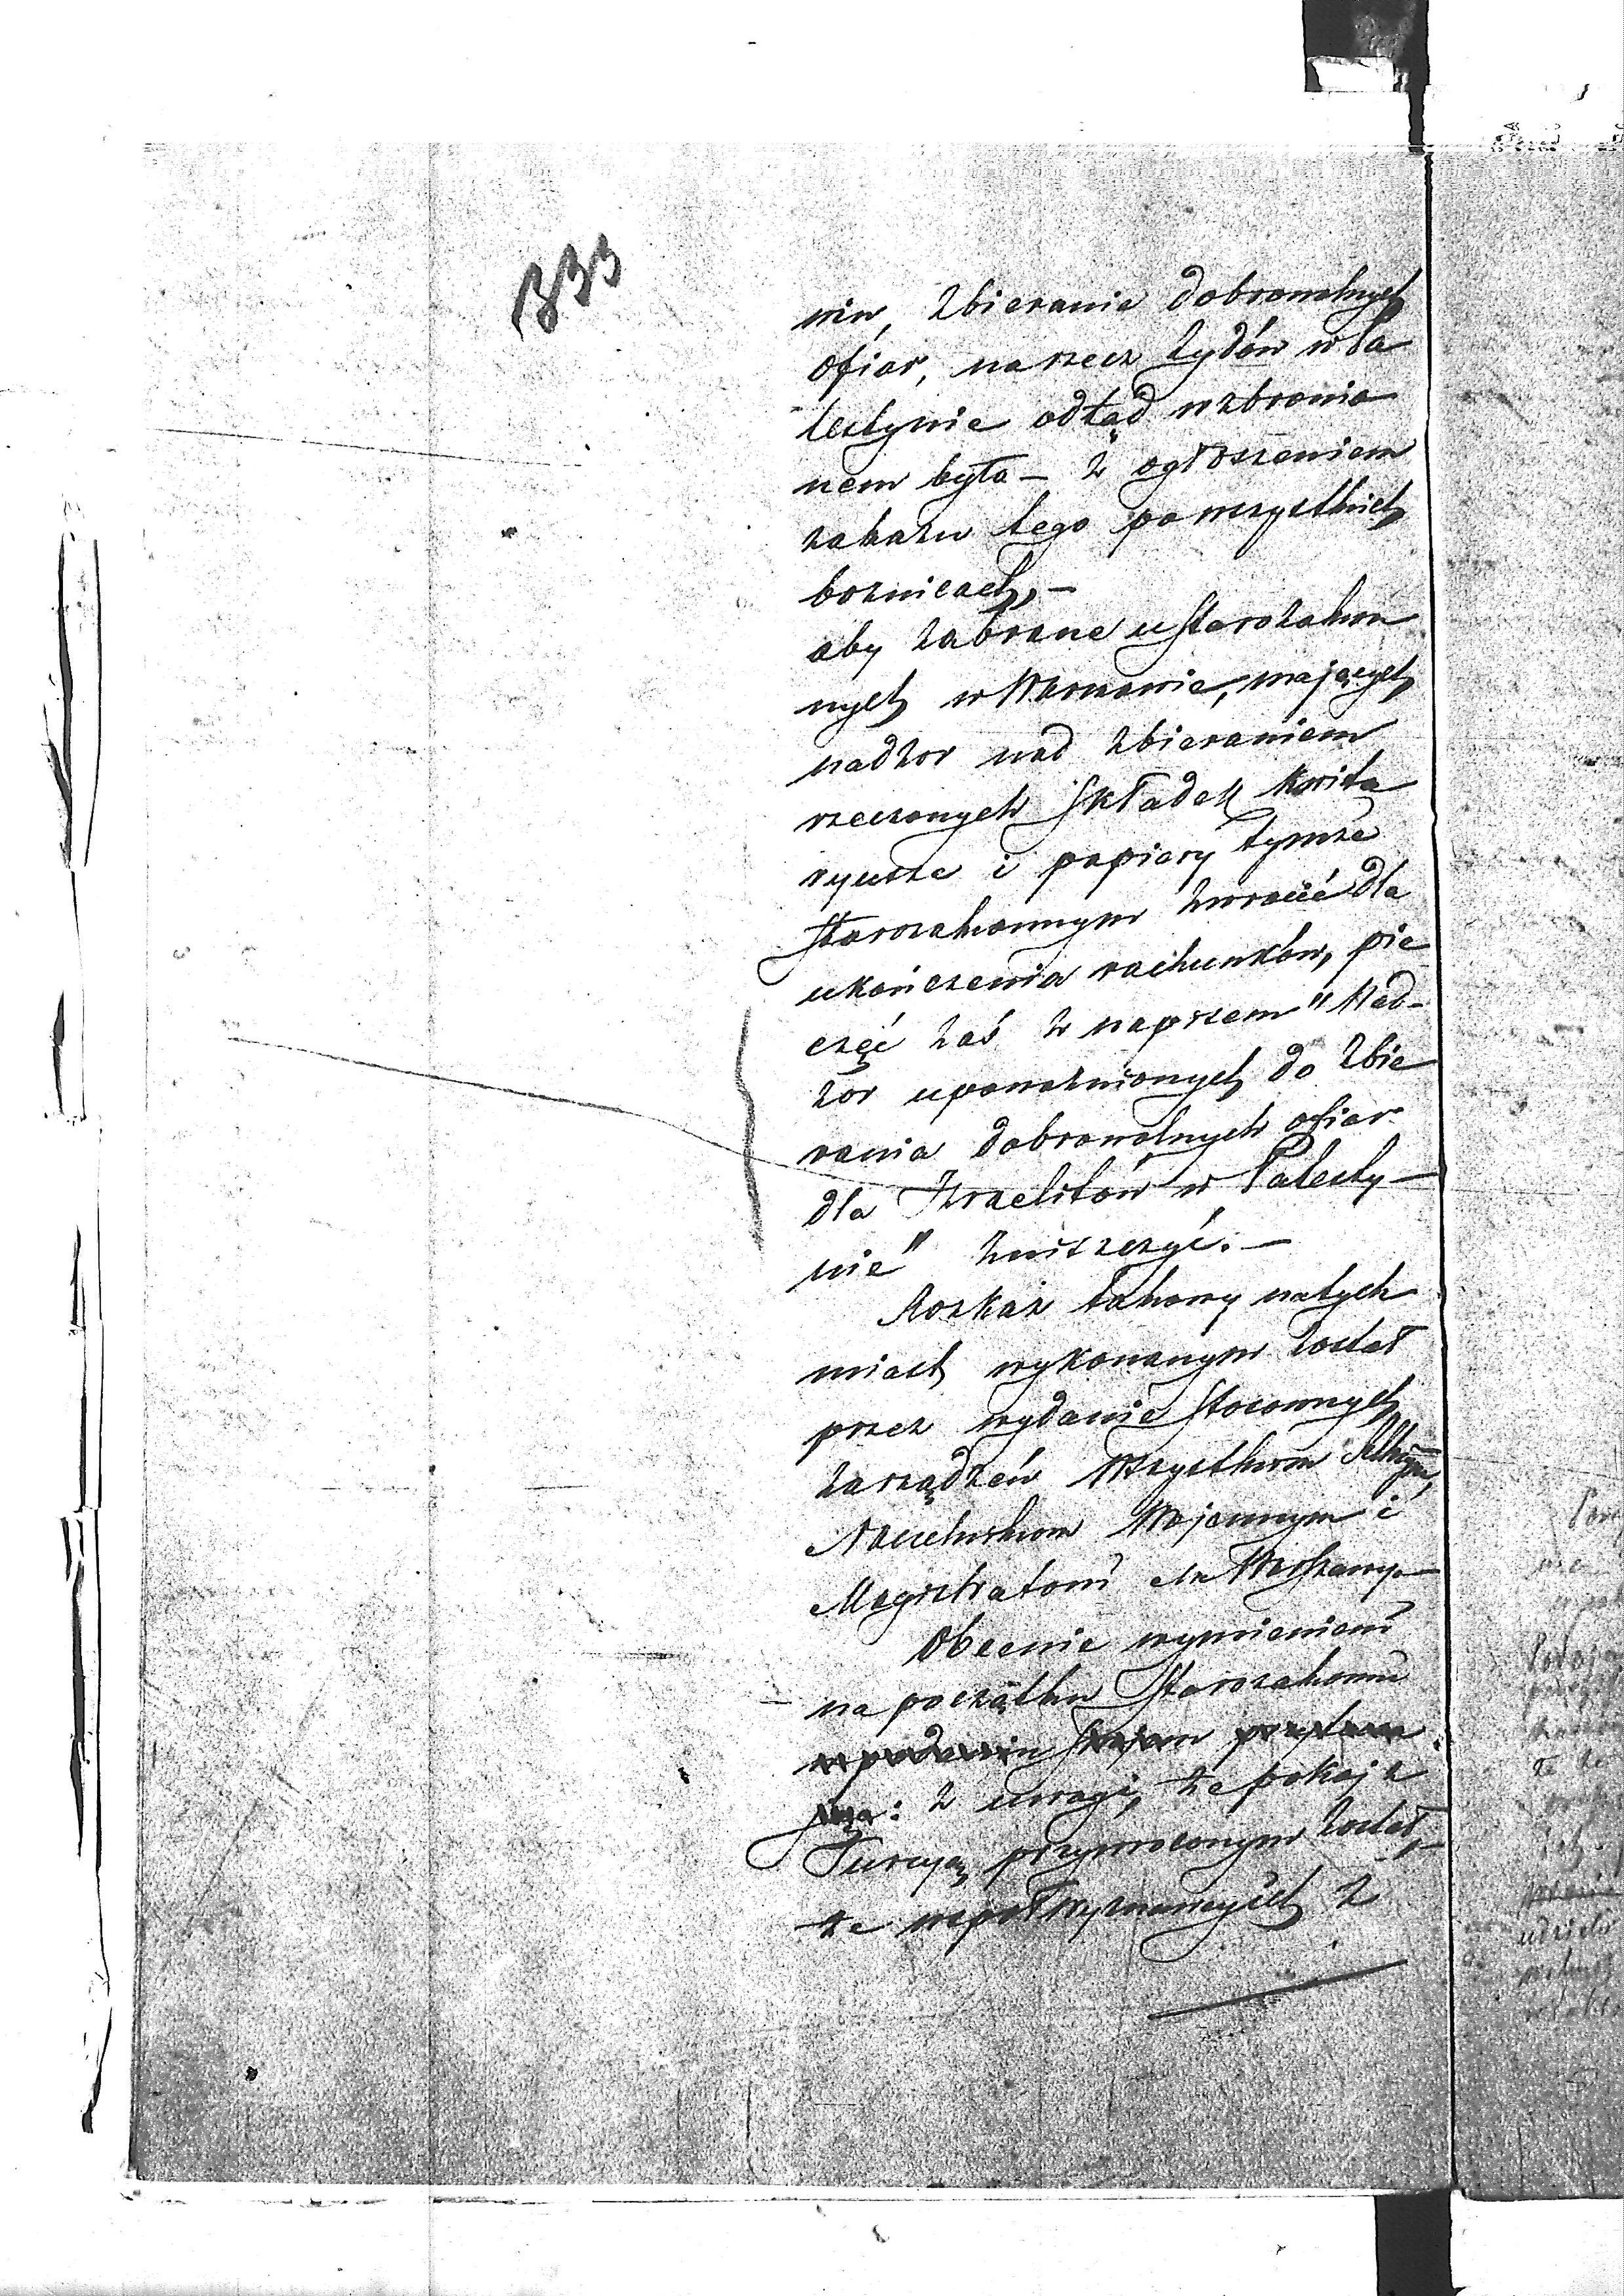 333
niu, zbieranie dobrowolnych
ofiar, na rzecz Żydów w Pa
lestynie odtąd wzbronio
nem było – z ogłoszeniem
zakazu tego po wszystkich
boznicach, –
aby zabrane u Starozakon
nych w Warszawie, mających
nadzor nad zbieraniem
rzeczonych Składek kwita
ryusze i papiery tymże
Starozakonnym zwrocić dla
ukończenia rachunków, pie
częć zaś z napisem "Nad-
zor upoważnionych do zbie
rania dobrowolnych ofiar
dla Izraelitów w Palesty-
nie" zniszczyć. –
Rozkaz takowy natych
miast wykonanym został
przez wydanie stosownych
zarządzeń Wszystkim
Naczelnikom Wojennym i
Magistratowi Warszawy. –
Obecnie wymienieni
na początku Starozakonni
w podaniu swojem
z uwagi, że pokój z
Turcyą przywroconym został, –
że współwyznawcy ich z